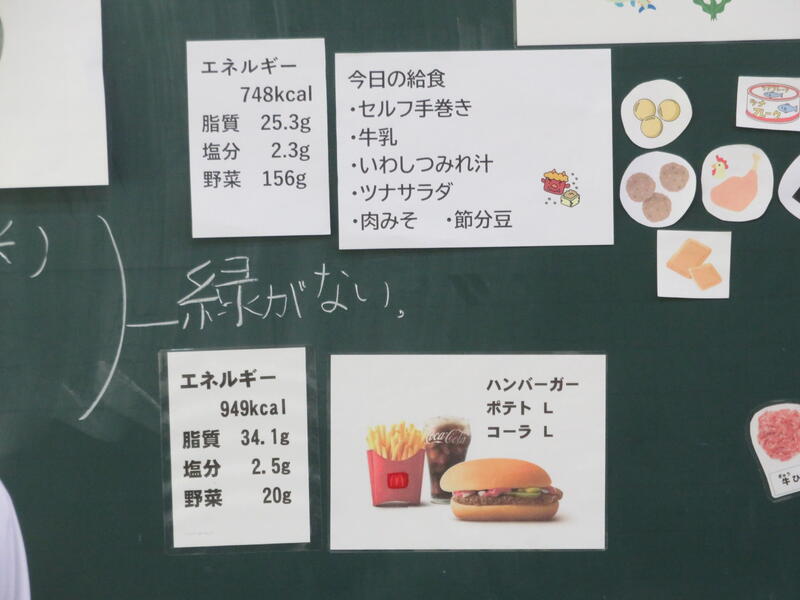 エネルギー
748kcal
脂質 25.3g
塩分 2.3g
野菜 156g
今日の給食
・セルフ手巻き
・牛乳
・いわしつみれ汁
・ツナサラダ
・肉みそ ・節分豆
緑がない。
エネルギー
949kcal
脂質 34.1g
塩分 2.5g
野菜 20g
ハンバーガー
ポテト L
コーラ L
Coca-Cola